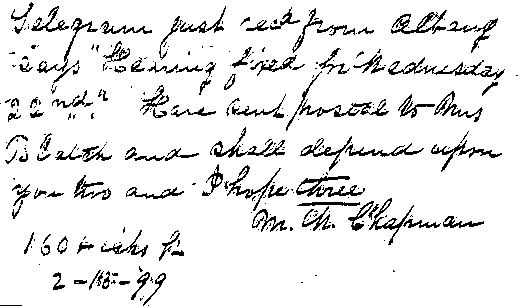 Telegram just rec'd from Albany
says "Hearing fixed for Wednesday
22nd." Have sent postal to Mrs
Blatch and shall depend upon
you two and I hope three
M. Ch. Chapman
160 Hicks St.
2 - 18 - 99